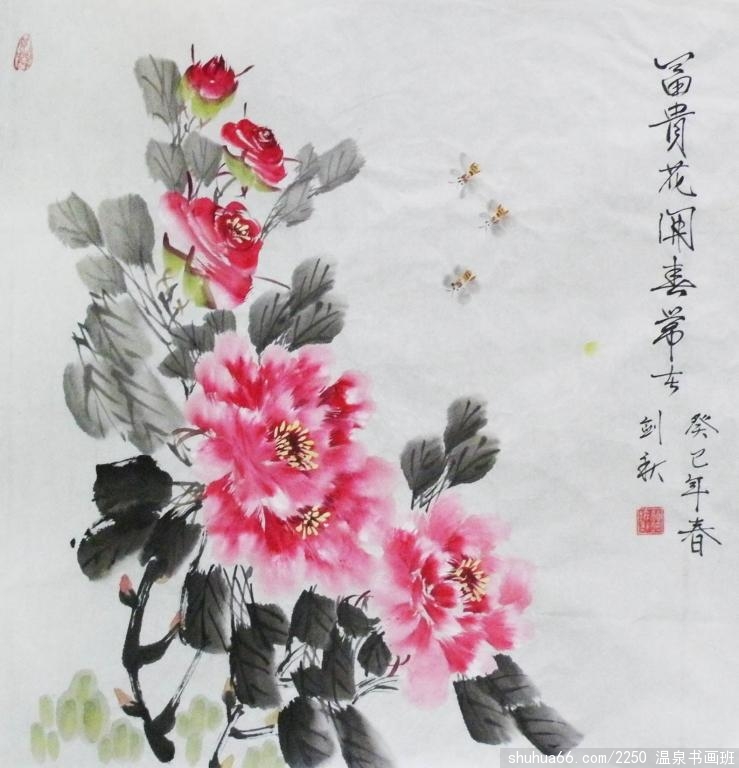 富貴花開春常在
癸巳年春
剑秋
shuhua66.com/2250 温泉书画班